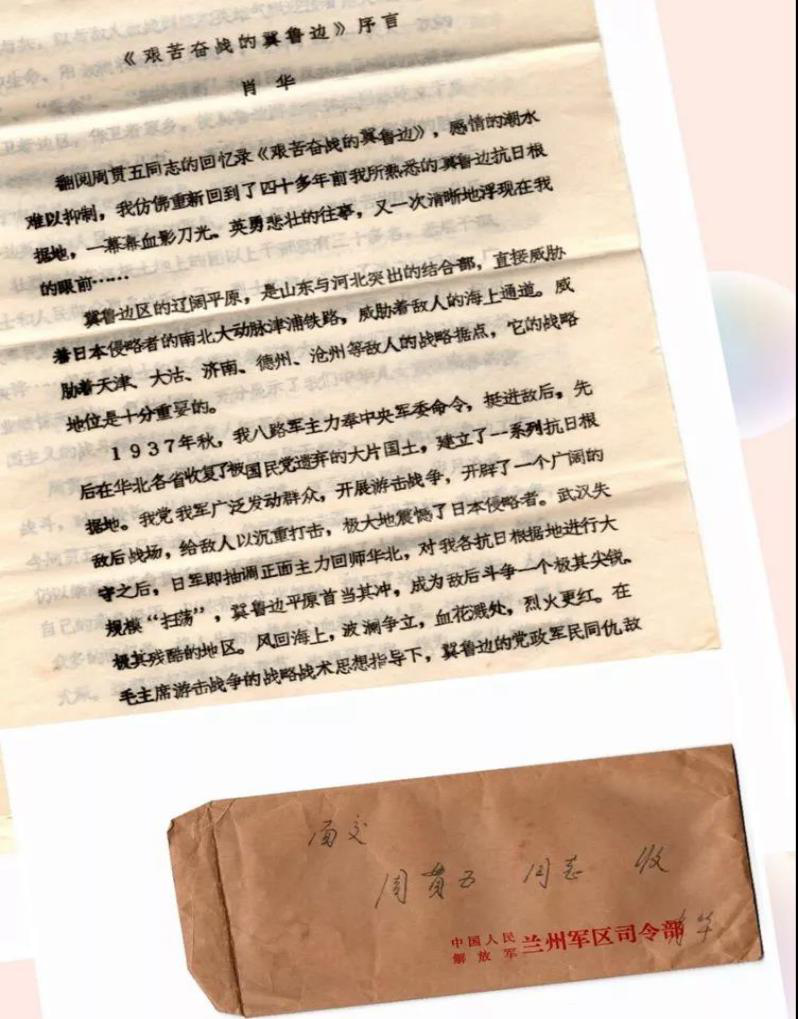 《艰苦奋战的冀鲁边》序言
肖 华
翻阅周贯五同志的回忆录《艰苦奋战的冀鲁边》，感情的潮水
难以抑制，我仿佛重新回到了四十多年前我所熟悉的冀鲁边抗日根
据地，一幕幕血影刀光。英勇悲壮的往事，又一次清晰地浮现在我
的眼前……
冀鲁边区的辽阔平原，是山东与河北突出的结合部，直接威胁
着日本侵略者的南北大动脉津浦铁路，威胁着敌人的海上通道。威
胁着天津、大沽、济南、德州、沧州等敌人的战略据点，它的战略
地位是十分重要的。
1937年秋，我八路军主力奉中央军委命令，挺进敌后，先
后在华北各省收复了被国民党遗弃的大片国土，建立了一系列抗日根
据地。我党我军广泛发动群众，开展游击战争，开辟了一个广阔的
敌后战场，给敌人以沉重打击，极大地震憾了日本侵略者。武汉失
守之后，日军即抽调正面主力回师华北，对我各抗日根据地进行大
规模“扫荡”，冀鲁边平原首当其冲，成为敌后斗争一个极其尖锐、
极其残酷的地区。风回海上，波澜争立，血花溅处，烈火更红。在
毛主席游击战争的战略战术思想指导下，冀鲁边的党政军民同仇敌
面交
周贯五 同志 收
中国人民解放军 兰州军区司令部
肖华